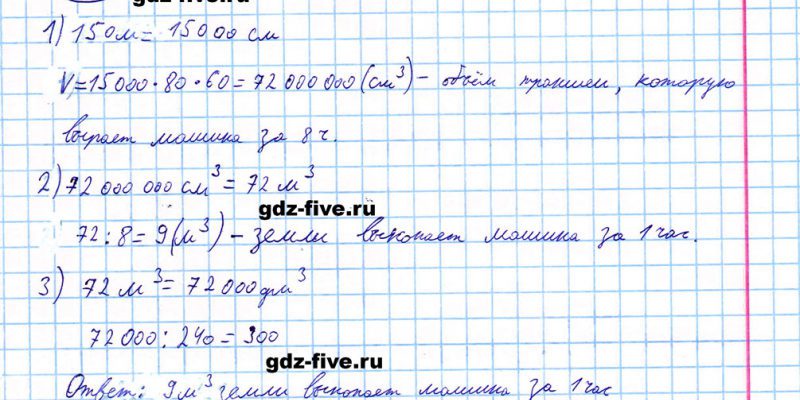 gdz-five.ru
1) 150м = 15000 см
V = 15000 • 80 • 60 = 72 000 000 (см³) - объём траншеи, которую
выроет машина за 8 ч.
2) 72 000 000 см³ = 72 м³
gdz-five.ru
72 : 8 = 9 (м³) - земли выкопает машина за 1 час.
3) 72 м³ = 72 000 дм³
72 000 : 240 = 300
gdz-five.ru
Ответ: 9 м³ земли выкопает машина за 1 час